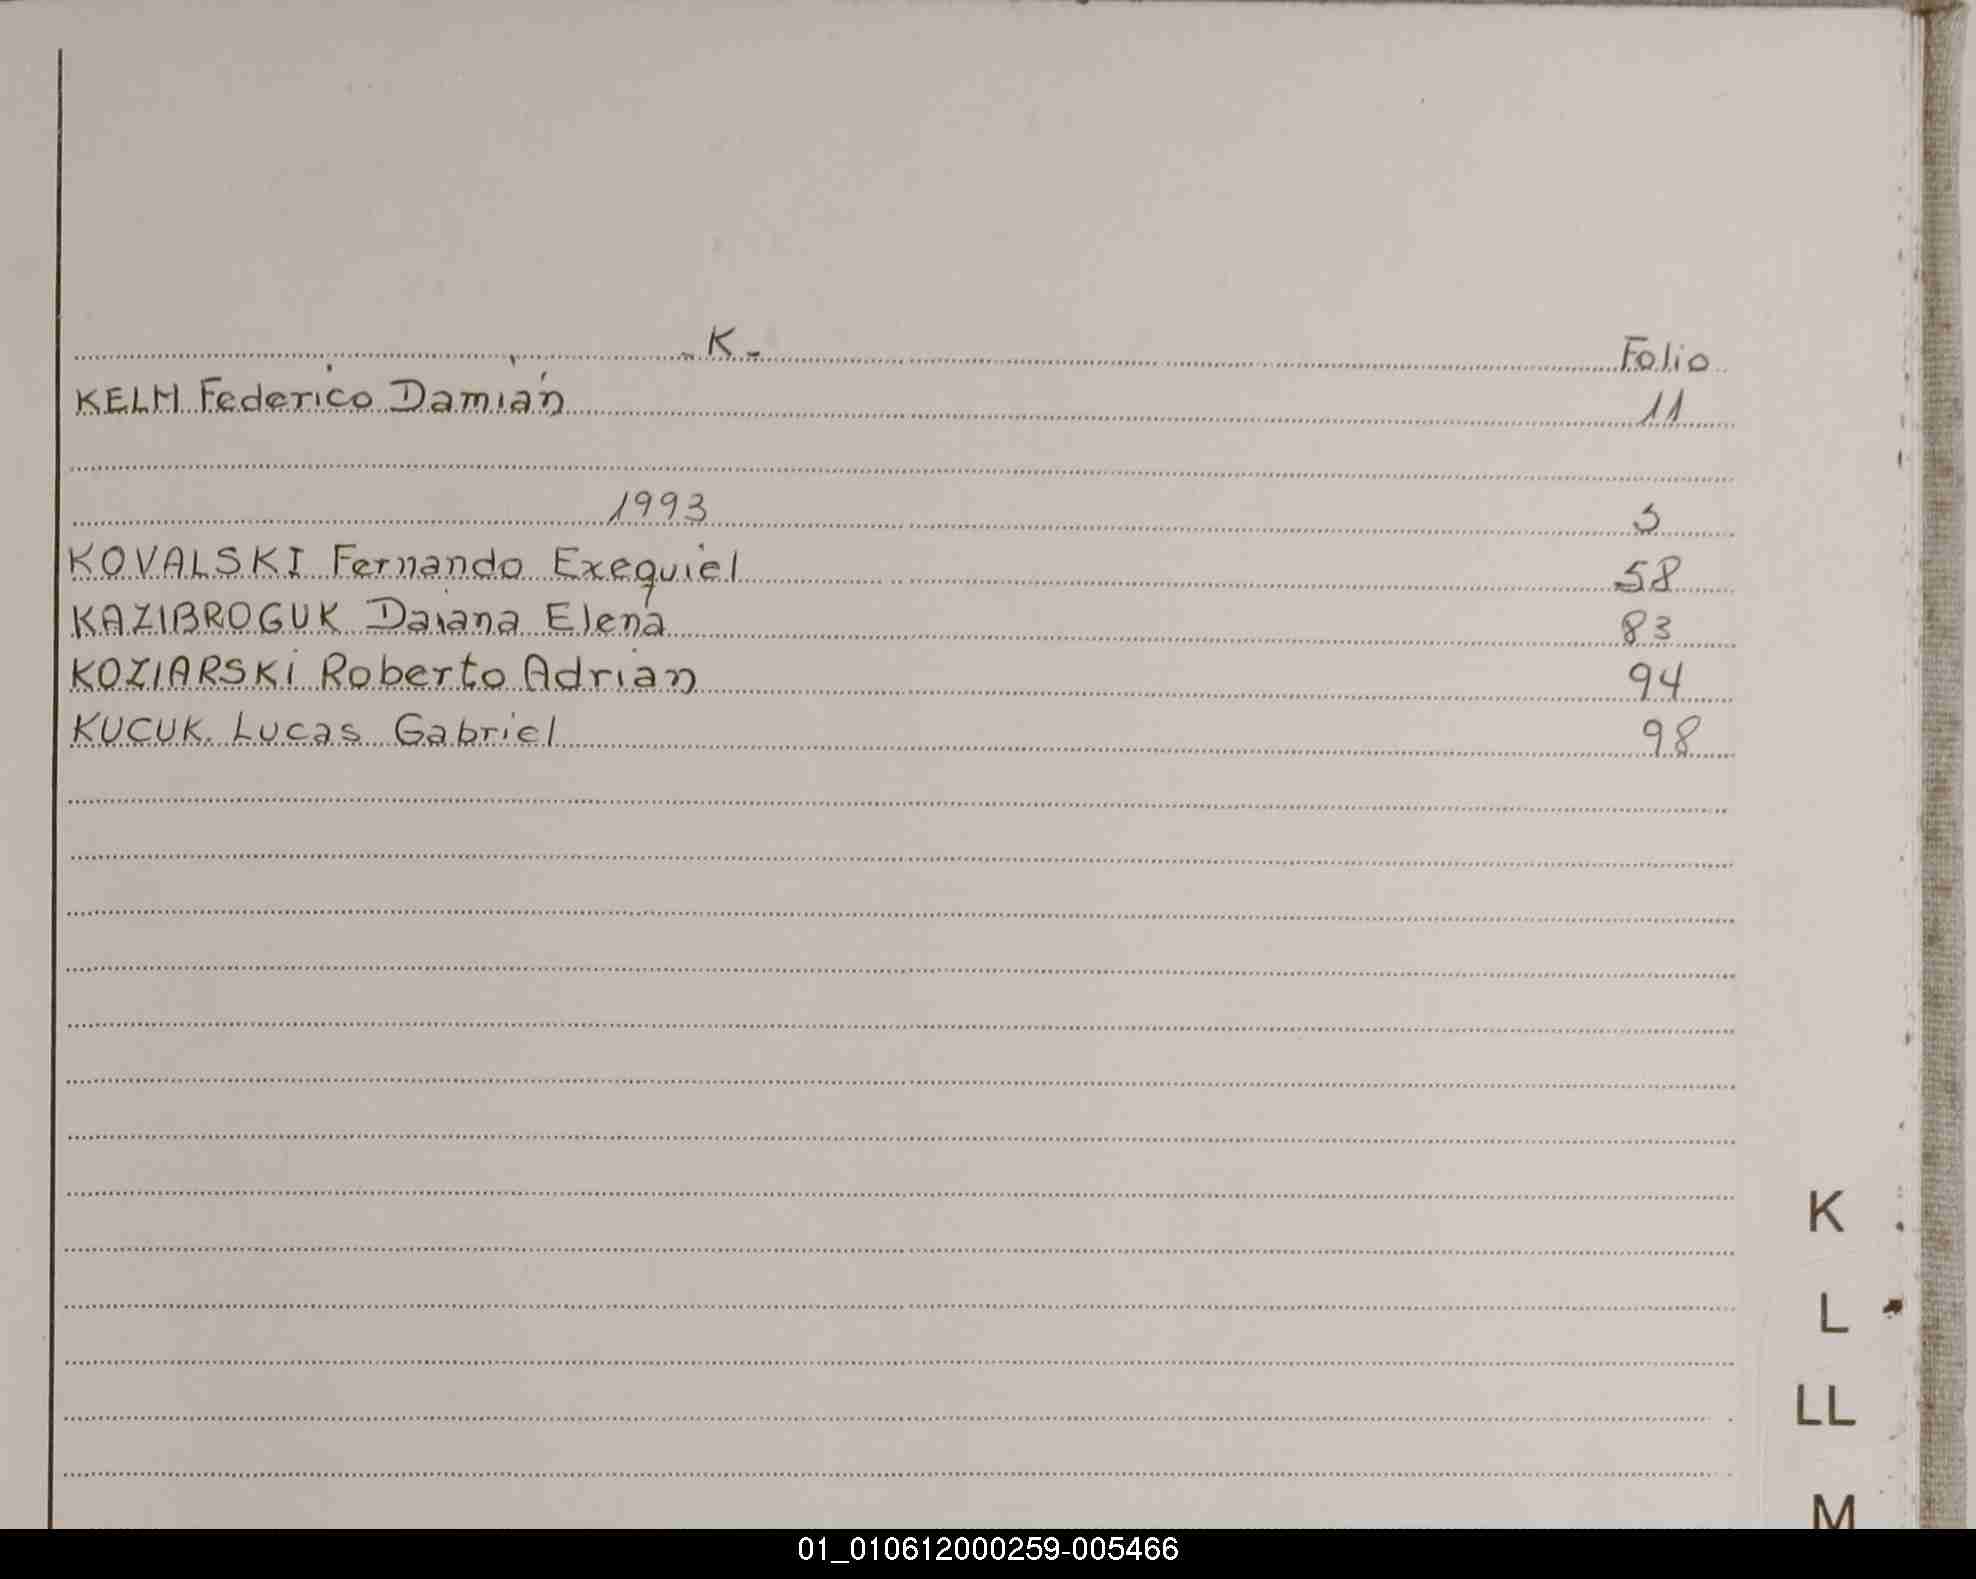 - K - Folio
KELM Federico Damián 11
1993
KOVALSKI Fernando Exequiel 58
KAZIBROGUK Daiana Elena 83
KOZIARSKi Roberto Adrian 94
KUCUK Lucas Gabriel 98
K
L
LL
M
01_010612000259-005466